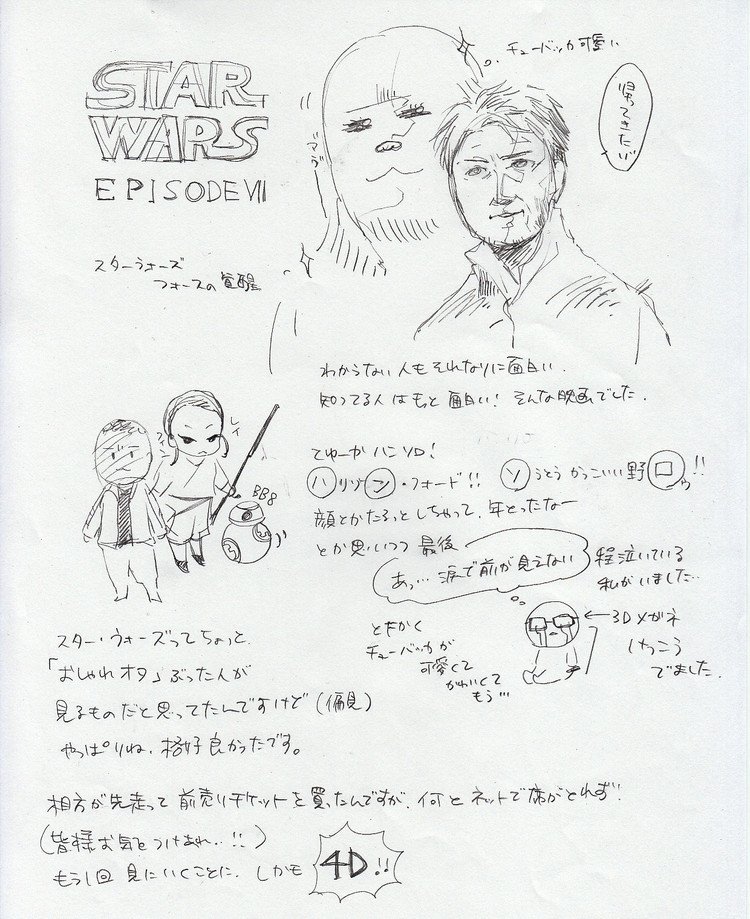 STAR
WARS
EPISODE VII
チューバッカ可愛い
帰ってきたい゛
スターウォーズ
フォースの覚醒
わからない人もそれなりに面白い.
知ってる人はもっと面白い! そんな映画でした.
てゆーかハンソロ!
ハリソン・フォード!! ソうとうかっこいい野ロッ!!
顔とかたるっとしちゃって、年とったなー
とか思いつつ 最後
あっ… 涙で前が見えない
程泣いている
私がいました…
フィン
レイ
BB8
←3Dメガネ
けっこう
でました.
とにかく
チューバッカが
可愛くて
かわいくて
もう…
スター・ウォーズってちょっと、
「おしゃれオタ」ぶった人が
見るものだと思ってたんですけど(偏見)
やっぱりね、格好良かったです。
相方が先走って前売りチケットを買ったんですが、何とネットで席がとれず!
(皆様お気をつけあれ..!!)
もう1回見にいくことに. しかも 4D!!